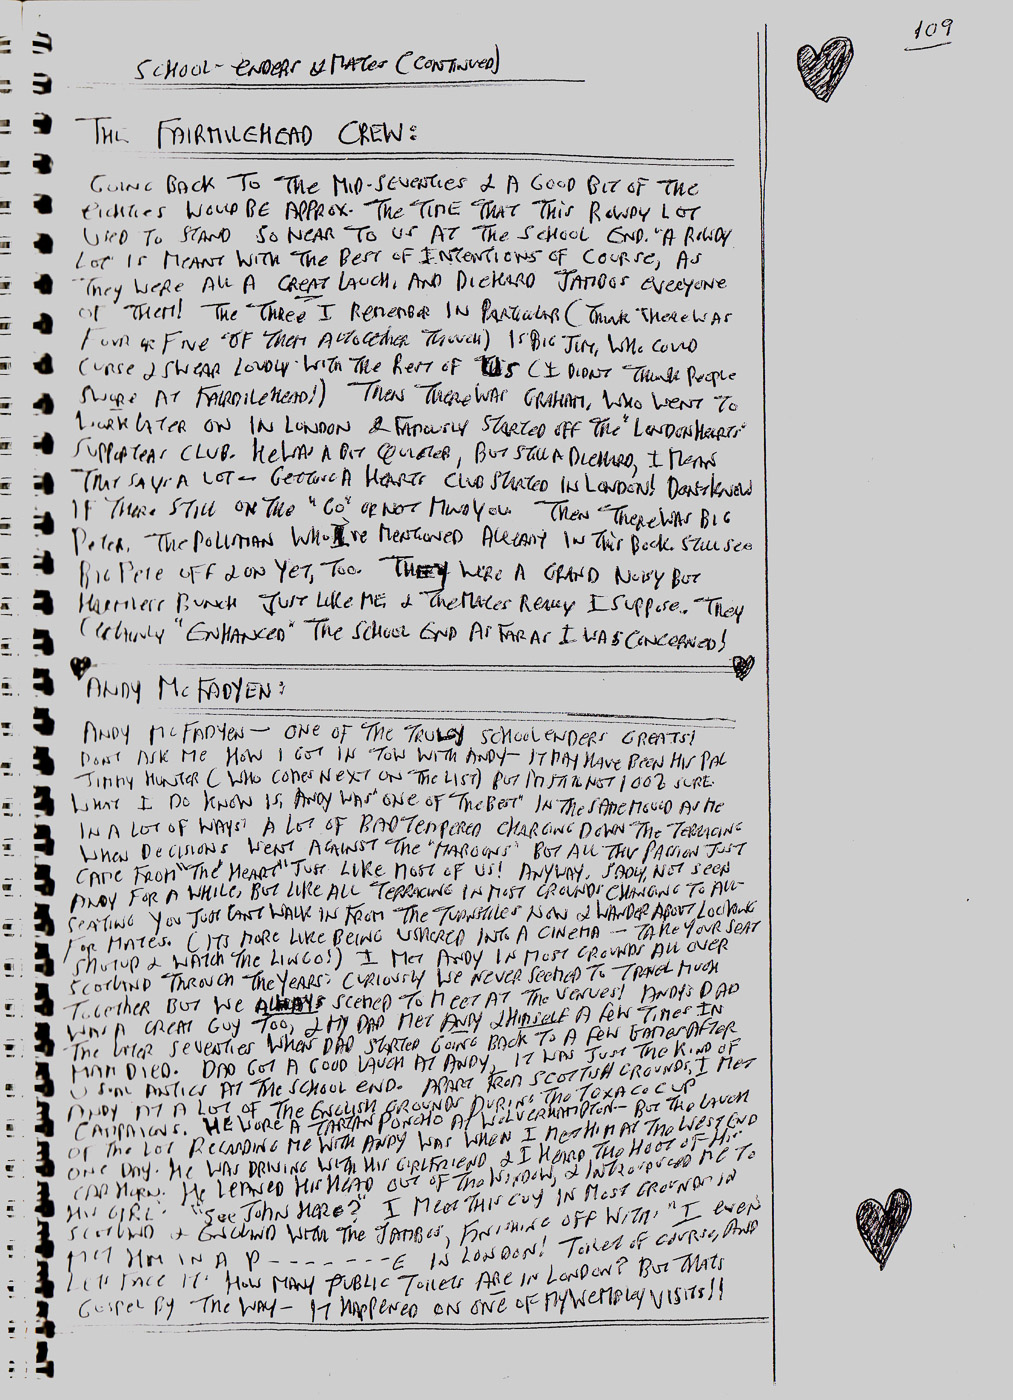 109
SCHOOL-ENDERS & MATES (CONTINUED)
THE FAIRMILEHEAD CREW:
GOING BACK TO THE MID-SEVENTIES & A GOOD BIT OF THE
EIGHTIES WOULD BE APPROX. THE TIME THAT THIS ROWDY LOT
USED TO STAND SO NEAR TO US AT THE SCHOOL END. "A ROWDY
LOT" IS MEANT WITH THE BEST OF INTENTIONS OF COURSE, AS
THEY WERE ALL A GREAT LAUGH, AND DIEHARD JAMBOS EVERYONE
OF THEM! THE THREE I REMEMBER IN PARTICULAR (THINK THERE WAS
FOUR OR FIVE OF THEM ALTOGETHER THOUGH) IS BIG JIM, WHO COULD
CURSE & SWEAR LOUDLY WITH THE REST OF US (I DIDNT THINK PEOPLE
SWORE AT FAIRMILEHEAD!) THEN THERE WAS GRAHAM, WHO WENT TO
WORK LATER ON IN LONDON & FAMOUSLY STARTED OFF THE "LONDON HEARTS"
SUPPORTERS CLUB. HE WAS A BIT QUIETER, BUT STILL A DIEHARD, I MEAN
THAT SAYS A LOT - GETTING A HEARTS CLUB STARTED IN LONDON! DONT KNOW
IF THERE STILL ON THE "GO" OR NOT MIND YOU. THEN THERE WAS BIG
PETER, THE POLISMAN WHO I'VE MENTIONED ALREADY IN THIS BOOK. STILL SEE
BIG PETE OFF & ON YET, TOO. THEY WERE A GRAND NOISY BUT
HARMLESS BUNCH JUST LIKE ME & THE MATES REALLY I SUPPOSE. THEY
CERTAINLY "ENHANCED" THE SCHOOL END AS FAR AS I WAS CONCERNED!
ANDY MCFADYEN:
ANDY MCFADYEN - ONE OF THE TRULY SCHOOLENDERS GREATS!
DONT ASK ME HOW I GOT IN TOW WITH ANDY - IT MAY HAVE BEEN HIS PAL
JIMMY HUNTER (WHO COMES NEXT ON THE LIST) BUT I'M STILL NOT 100% SURE.
WHAT I DO KNOW IS, ANDY WAS "ONE OF THE BEST" IN THE SAME MOULD AS ME
IN A LOT OF WAYS! A LOT OF BAD TEMPERED CHARGING DOWN THE TERRACING
WHEN DECISIONS WENT AGAINST THE "MAROONS" BUT ALL THE PASSION JUST
CAME FROM "THE HEART" JUST LIKE MOST OF US! ANYWAY, SADLY, NOT SEEN
ANDY FOR A WHILE, BUT LIKE ALL TERRACING IN MOST GROUNDS CHANGING TO ALL-
SEATING YOU JUST CANT WALK IN FROM THE TURNSTILES NOW & WANDER ABOUT LOOKING
FOR MATES. (ITS MORE LIKE BEING USHERED INTO A CINEMA - TAKE YOUR SEAT
SHUTUP & WATCH THE LINGO!) I MET ANDY IN MOST GROUNDS ALL OVER
SCOTLAND THROUGH THE YEARS. CURIOUSLY WE NEVER SEEMED TO TRAVEL MUCH
TOGETHER BUT WE ALWAYS SEEMED TO MEET AT THE VENUES! ANDY'S DAD
WAS A GREAT GUY TOO, & MY DAD MET ANDY & HIMSELF A FEW TIMES IN
THE LATER SEVENTIES WHEN DAD STARTED GOING BACK TO A FEW GAMES AFTER
MAM DIED. DAD GOT A GOOD LAUGH AT ANDY, IT WAS JUST THE KIND OF
USUAL ANTICS AT THE SCHOOL END. APART FROM SCOTTISH GROUNDS, I MET
ANDY AT A LOT OF THE ENGLISH GROUNDS DURING THE TEXACO CUP
CAMPAIGNS. HE WORE A TARTAN PONCHO AT WOLVERHAMPTON - BUT THE LAUGH
OF THE LOT REGARDING ME WITH ANDY WAS WHEN I MET HIM AT THE WEST END
ONE DAY. HE WAS DRIVING WITH HIS GIRLFRIEND, & I HEARD THE HOOT OF HIS
CAR HORN. HE LEANED HIS HEAD OUT OF THE WINDOW, & INTRODUCED ME TO
HIS GIRL. "SEE JOHN HERE?" I MEET THIS GUY IN MOST GROUNDS IN
SCOTLAND & ENGLAND WITH THE JAMBOS, FINISHING OFF WITH: "I EVEN
MET HIM IN A P--------E IN LONDON! TOILET OF COURSE, AND
LETS FACE IT. HOW MANY PUBLIC TOILETS ARE IN LONDON? BUT THATS
GOSPEL BY THE WAY - IT HAPPENED ON ONE OF MY WEMBLEY VISITS!!